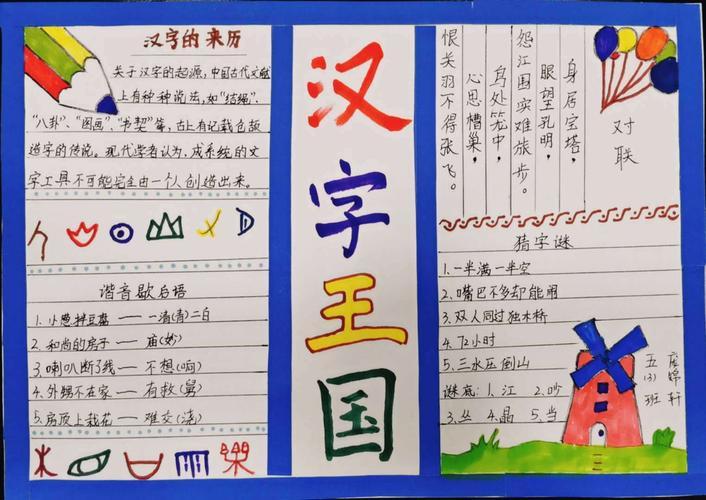 汉字的来历
关于汉字的起源,中国古代文献
上有种种说法,如"结绳"、
"八卦"、"图画"、"书契"等,古上有记载仓颉
造字的传说。现代学者认为,成系统的文
字工具不可能完全由一个人创造出来。
谐音歇后语
1. 小葱拌豆腐——一清(青)二白
2. 和尚的房子——庙(妙)
3.喇叭断了线——不想(响)
4.外甥不在家——有救(舅)
5.房顶上栽花——难交(浇)
汉字王国
对联
身居宝塔,
眼望孔明,
怨江围实难旅步。
鸟处笼中,
心思槽巢,
恨关羽不得张飞。
猜字谜
1.一半满一半空
2.嘴巴不多却能闹
3.双人同过独木桥
4.72小时
5.三水压倒山
谜底:1.江 2.吵
3.丛 4.晶 5.当
五(3)班
锦轩